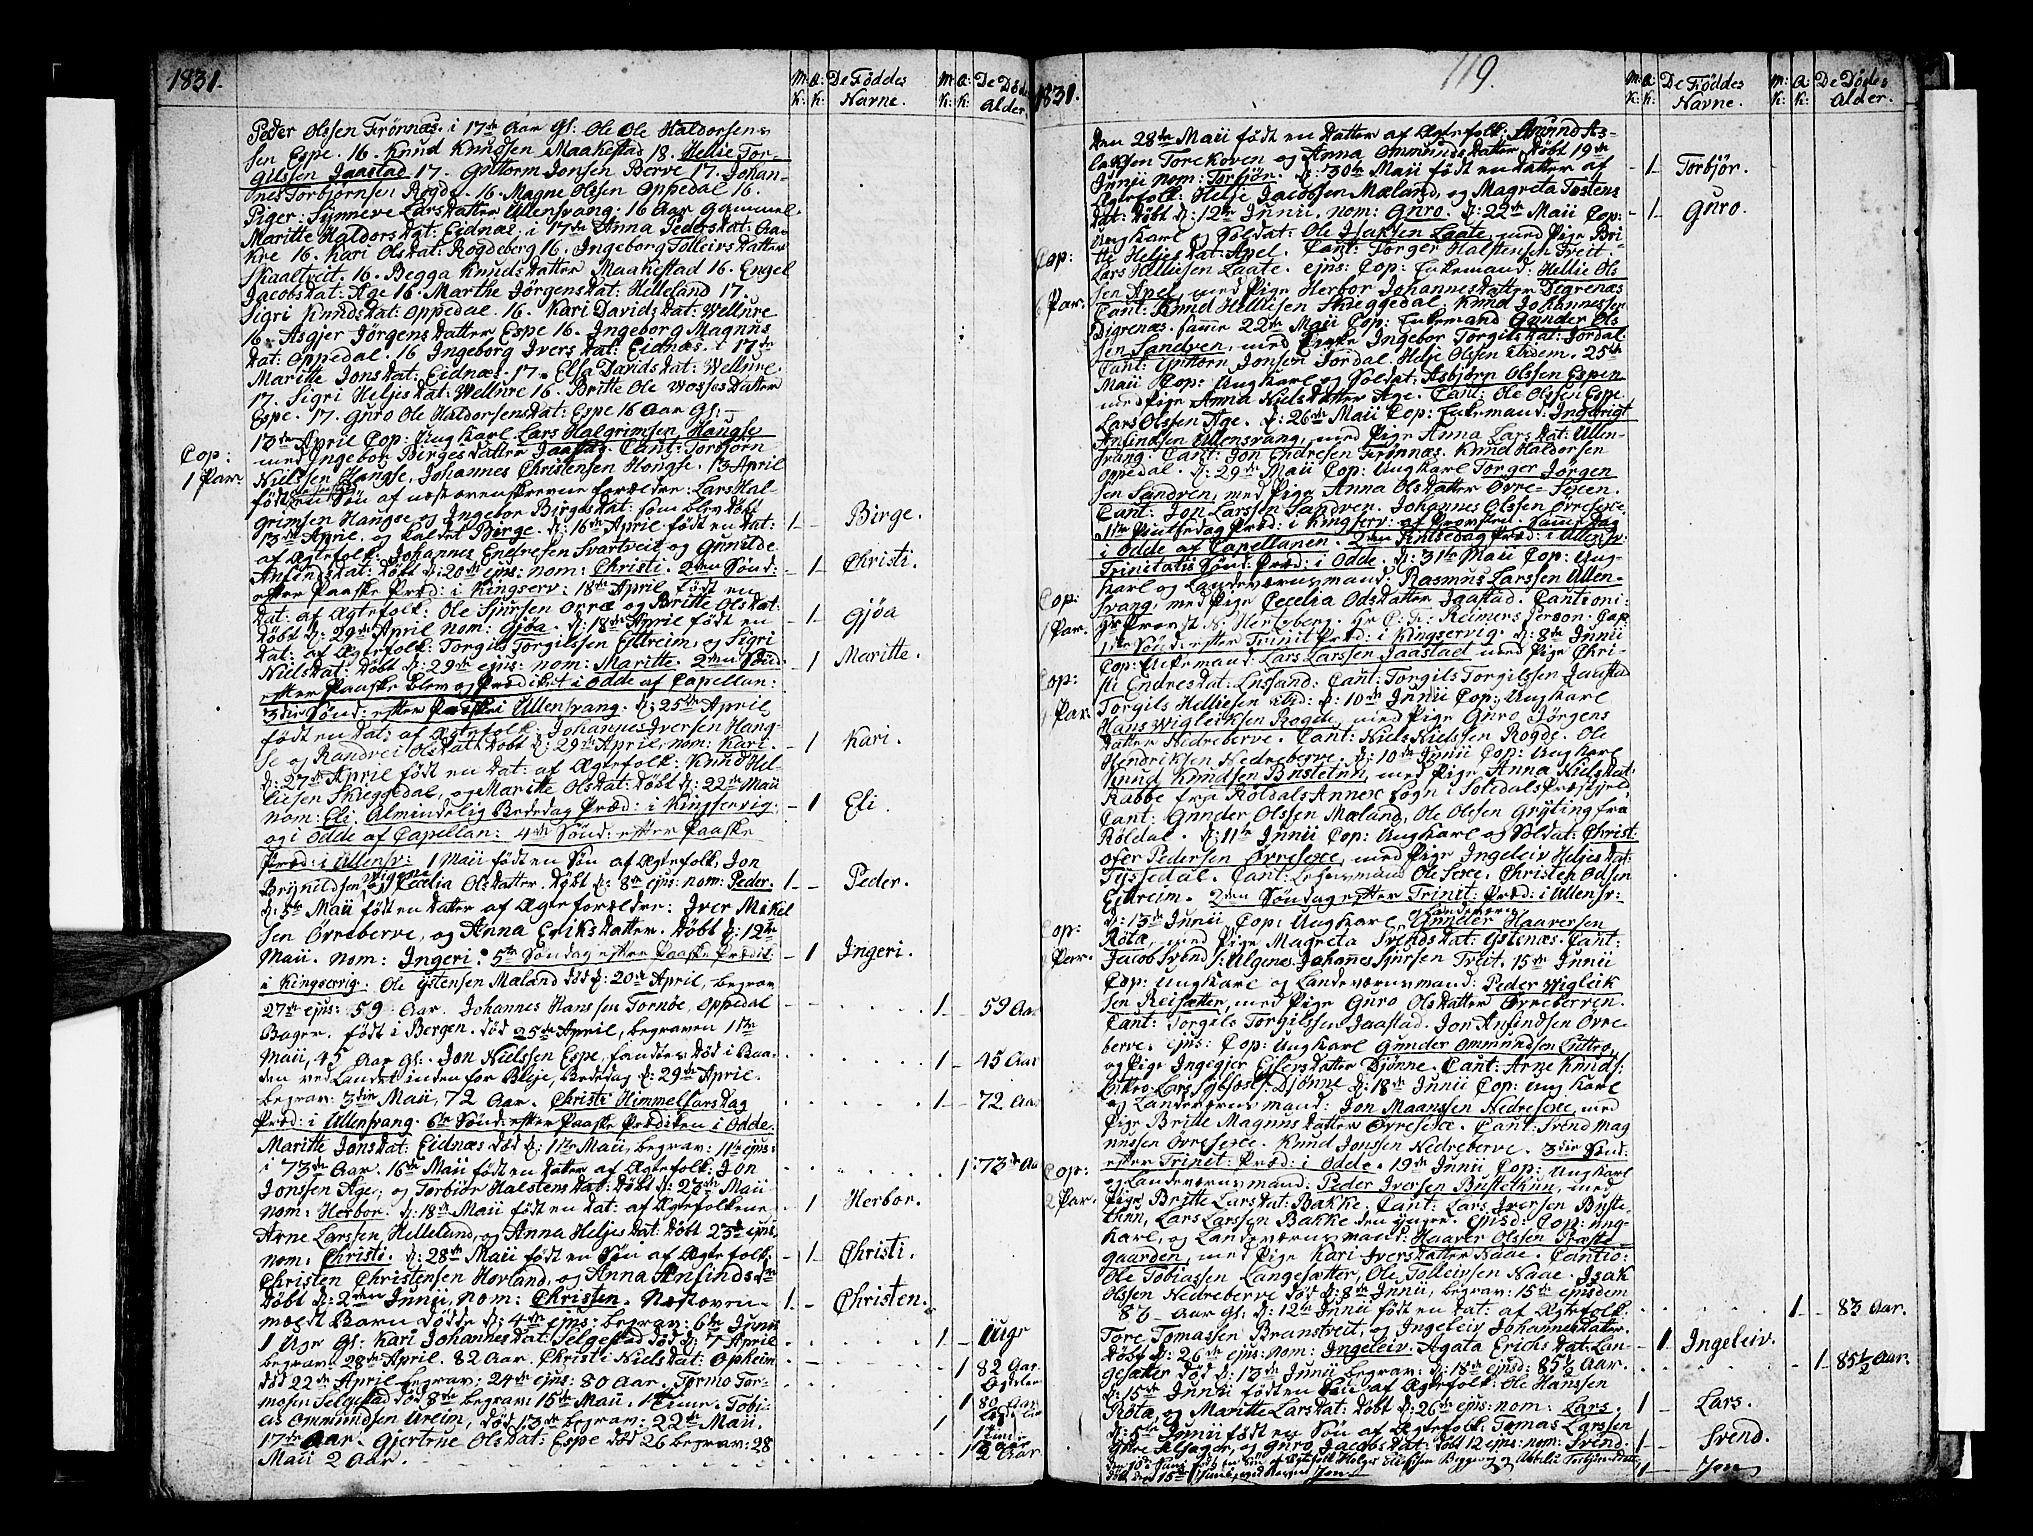 1831.
M: K:
Q: K:
De Føddes Navne.
M: K:
Q: K:
De Dødes Alder.
Peder Olssen Frönnæs. i 17de Aar gl: Ole Ole Haldorsens-
sen Espe. 16. Knud Knudsen Maakestad 18. Hellie Tor-
gilssen Jaastad 17. Guttorm Jonsen Berve 17. Johan-
nes Torbjörnsen Rogde. 16. Magne Olssen Oppedal 16.
Piger: Synneve Larsdatter Ullensvang: 16 Aar gammel.
Maritte Haldorsdat: Eidnæs. i 17de Anna Pedersdat: Aa-
kre 16. Kari Olsdat: Rogdeberg 16. Ingeborg Tolleivsdatter
Skaaltveit 16. Begga Knudsdatter Maakestad 16. Engel
Jacobsdat: Age 16. Marthe Jörgensdat: Helleland 17.
Sigri Knudsdat: Oppedal. 16. Kari Davidsdat: Wellure
16. Asgjer Jörgensdatter Espe 16. Ingeborg Magnus
dat: Oppedal. 16 Ingeborg Iversdat: Eidnæs. i 17de
Maritte Jonsdat: Eidnæs. 17. Elsa Davidsdat: Wellure.
17. Sigri Heljesdat: Wellure 16. Britte Ole Wossesdatter
Espe. 17. Guro Ole Haldorsensdat: Espe 16 Aar Gl: -
Cop: 1 Par
13de April Cop: Ungkarl Lars Halgrimsen Haugse
med Ingebor Birgesdatter Jaastad. Cant: Torbjörn
Nielssen Haugse, Johannes Christensen Hougse. 13 April
født en Søn af næst ovenskrevne forældre: Lars Hal-
grimsen Haugse og Ingebor Birgesdat: som blev døbt
13de April. og kaldet Birge. d: 16de April født en dat: 1 - Birge.
af Ægtefolk: Johannes Endresen Svartveit og Gunilde
Anfindsdat: døbt d: 20de ejus: nom: Christi. 2den Sønd: - 1 - Christi.
efter Paaske Præd: i Kingserv: 18de April født en
dat: af Ægtefolk: Ole Sjursen Orræ og Britte Olsdat:
døbt d: 29de April nom: Gjøa. d: 18de April født en - 1 - Gjøa
dat: af Ægtefolk: Torgils Torgilssen Eitreim, og Sigri
Nielsdat: døbt d: 29de ejus: nom: Maritte. 2den Sønd: - 1 Maritte.
efter Paaske blev og Prædiket i Odde af Capellan:
3die Sønd: efter Paaske i Ullensvang. d: 25de April
født en dat: af Ægtefolk: Johannes Iversen Haug-
se og Randvei Olsdat: døbt d: 29de April, nom: Kari. - 1 Kari.
d: 27de April født en dat: af Ægtefolk: Knud Hel-
liesen Skieggedal, og Maritte Olsdat: døbt d: 22de Maii
nom: Eli. Almindelig Bededag Præd: i Kingservig: - 1 Eli.
og i Odde af Capellan: 4de Sønd: efter Paaske
Præd: i Ullensv: 1 Maii født en Søn af Ægtefolk, Jon
Brynildsen Cecelia Olsdatter. døbt d: 8de ejus: nom: Peder. 1 - - Peder.
d: 5te Maii født en datter af Ægteforældre: Iver Mikel
sen Örreberve, og Anna Eriksdatter. døbt d: 12te
Maii. nom: Ingeri. 5te Søndag efter Paaske Prædik: - 1 Ingeri.
i Kingservig. Ole Ystensen Mæland død d: 20de April, begrav
27de ejus: 59 Aar. Johannes Hanssen Tornbe, Oppedal 1 - 59 Aar
Bager. født i Bergen. død 25de April, begraven 1ste
Maii, 45 Aar Gl: Jon Nielssen Espe, fandtes død i Baa- 1 - 45 Aar
den ved Landet inden for Blye, Bededag d: 29de April.
begrav: 3die Maii, 72 Aar. Christi Himmelfarsdag 1 - 72 Aar
Præd: i Ullensvang. 6te Sønd: efter Paaske Prædiken i Odde.
Maritte Jonsdat: Eidnæs død d: 1ste Maii, begrav: 11te ejus:
i 73de Aar. 16de Maii født en datter af Ægtefolk: Jon 1: 73de Aar
Jonssen Age, og Torbiör Halstensdat: døbt d: 22de Maii
nom: Herbor. d: 18de Maii født en dat: af Ægtefolkene - 1 Herbor.
Arne Larssen Helleland, og Anna Heljesdat: døbt 23de ejus,
nom: Christi. d: 28de Maii født en Søn af Ægtefolk: - 1 - Christi.
Christen Christensen Hovland, og Anna Anfindsdr
døbt d: 2den Junii, nom: Christen. Næstoven- 1 - Christen.
mældt Barn døde d: 4de ejus: begrav: 6te Junii
1 Uge Gl: Kari Johannesdat: Selgestad død d: 7 April 1 - 1 Uge
begrav: 28de April. 82 Aar. Christi Nielsdat: Opheim 1 82 Aar.
død 22de April begrav: 24de ejus: 80 Aar. Tormo Tor-
mosen Selgestad død 8de begrav: 15de Maii, 1 Time. Tobi- 1 80 Aar
as Ommundsen Areim, død 13de begrav: 22de Maii.
17de Aar. Gjertrue Olsdat: Espe død 26 begrav: 28
Maii 2 Aar. 1 2 Aar
119.
1831.
M: K:
Q: K:
De Føddes Navne.
M: K:
Q: K:
De Dødes Alder.
den 28de Maii født en datter af Ægtefolk: Amund As-
laksen Torekoven og Anna Ommundsdatter døbt 19de
Junii nom: Torbjör. d: 30te Maii født en datter af - 1 - Torbjør.
Ægtefolk: Helje Jacobsen Mæland, og Magreta Tostens
dat: døbt d: 12te Junii, nom: Guro. d: 22de Maii Cop: - 1 - Guro.
Cop:
Ungkarl og Soldat: Ole Isaksen Laate, med Pige Bri-
tte Heljesdat: Apel. Cant: Torger Halstensen Freit.
Lars Helliesen Laate. ejus: Cop: Enkemand: Hellie Ols
Par.
sen Apel, med Pige Herbor Johannesdatter Digrenæs
Cant: Knud Helliesen Skieggedal. Knud Johannessen
Digrenæs. samme 22de Maii Cop: Enkemand Gunder Ols
sen Sandven, med Enke Ingebor Torgilsdat: Jordal.
Cant: Guttorm Jonsen Jordal. Helje Olssen ibidem. 25de
Maii Cop: Ungkarl og Soldat: Asbjörn Olssen Espen
med Pige Anna Nielsdatter Age. Cant: Ole Olssen Espe.
Lars Olssen Age. d: 26de Maii Cop: Enkemand: Ingebrigt
Anfindsen Ullensvang, med Pige Anna Larsdat: Ullen-
svang. Cant: Jon Endresen Frönnæs. Knud Haldorsen
Oppedal. d: 29de Maii Cop: Ungkarl Torger Jörgen
sen Sandven, med Pige Anna Olsdatter Övre-Sexen.
Cant: Jon Larssen Sandven. Johannes Olssen Övresexe.
1ste Pintsedag Præd: i Kingserv: af Provsten. samme dag
i Odde af Capellanen. 2den Pintsedag Præd: i Ullensv:
Trinitatis Sønd: Præd: i Odde. d: 31te Maii Cop: Ung-
karl og Landeværnsmand: Rasmus Larssen Ullen-
Cop: 1 Par.
svang, med Pige Cecelia Odsdatter Jaastad. Cantioni:
Hr Provst N: Hertzberg. Hr C: F: Reimers Person. Cap:
1ste Sønd: efter Trinit: Præd: i Kingservig. d: 8de Junii
Cop: Enkemand: Lars Larssen Jaastad med Pige Chri-
Cop: 1 Par.
sti Endresdat: Lusand: Cant: Torgils Torgilssen Jaastad
Torgils Helliesen ibid: d: 10de Junii Cop: Ungkarl
Hans Wigleiksen Rogde, med Pige Guro Jörgens
datter Nedreberve. Cant: Niels Nielssen Rogde. Ole
Hendriksen Nedreberve. d: 10de Junii Cop: Ungkarl
Knud Knudsen Bustetun, med Pige Anna Nielsdat:
Rabbe fra Röldals Annex Sogn i Soledals Præstegjeld.
Cant: Gunder Olssen Mæland, Ole Olssen Gryting fra
Röldal. d: 11te Junii Cop: Ungkarl og Soldat: Christ:
ofer Pedersen Övresexe, med Pige Ingeleiv Heljesdat:
Tyssedal. Cant: Lensmand Ole Sexe. Christen Odsen
Eitreim. 2den Søndag efter Trinit: Præd: i Ullensv:
Cop:
d: 13de Junii Cop: Ungkarl og Landeværn: Gunder Haaversen
Rôtæ, med Pige Magreta Svendsdat: Ystenæs. Cant:
Par.
Jacob Svends: Ulgenes. Johannes Sjursen Freit. 15de Junii
Cop: Ungkarl og Landeværnsmand: Peder Wigleik
sen Reisætter, med Pige Guro Olsdatter Örreberven.
Cant: Torgils Torgilssen Jaastad. Jon Anfindsen Övre-
berve. ejus: Cop: Ungkarl Gunder Ommundsen Eittro,
og Pige Ingegjer Eilersdatter Djönne. Cant: Arne Knuds:
Djönne d: 18de Junii Cop: Ung Karl
og Landeværnsmand: Jon Maanssen Nedresexe, med
Pige Britte Magnusdatter Övresexe. Cant: Svend Mag
nussen Övresexe. Knud Jonssen Nedreberve. 3die Sønd:
Cop: 2 Par.
efter Trinit: Præd: i Odde. 19de Junii Cop: Ungkarl
og Landeværnsmand: Peder Iversen Bustetun, med
Pige Britte Larsdat: Bakke. Cant: Lars Iversen Buste-
thun, Lars Larssen Bakke den yngre. ejusd: Cop: Ung-
karl, og Landeværnsmand: Haaver Olssen Præste-
gaarden, med Pige Kari Iversdatter Naae. Cantio:
Ole Tobiassen Langesætter, Ole Tolleivsen Naae. Isak
Olssen Nedreberve død d: 8de Junii, begrav: 15de ejusdem
83 - Aar Gl: d: 12te Junii født en dat: af Ægtefolk: 1 - 83 Aar.
Tore Tomassen Branstveit, og Ingeleiv Johannesdatter.
døbt d: 26de ejus: nom: Ingeleiv. Agata Erichsdat: Lan- - 1 Ingeleiv.
gesæter død d: 13de Junii begrav: d: 18de ejusd: 85½ Aar. - 1 - 85½ Aar.
d: 15de Junii født en Søn af Ægtefolk: Ole Hanssen
Rôtæ, og Maritte Larsdat: døbt d: 26de ejus: nom: Lars. 1 - Lars.
d: 5te Junii født en Søn af Ægtefolk: Tomas Larssen
Selsager, og Guro Jacobsdat: døbt 12 ejus: nom: Svend. 1 - Svend.
den 10de Junii født en Søn af Ægtefolk Helge
døbt den 15de Junii, ved Navn Jon. 1 - Jon